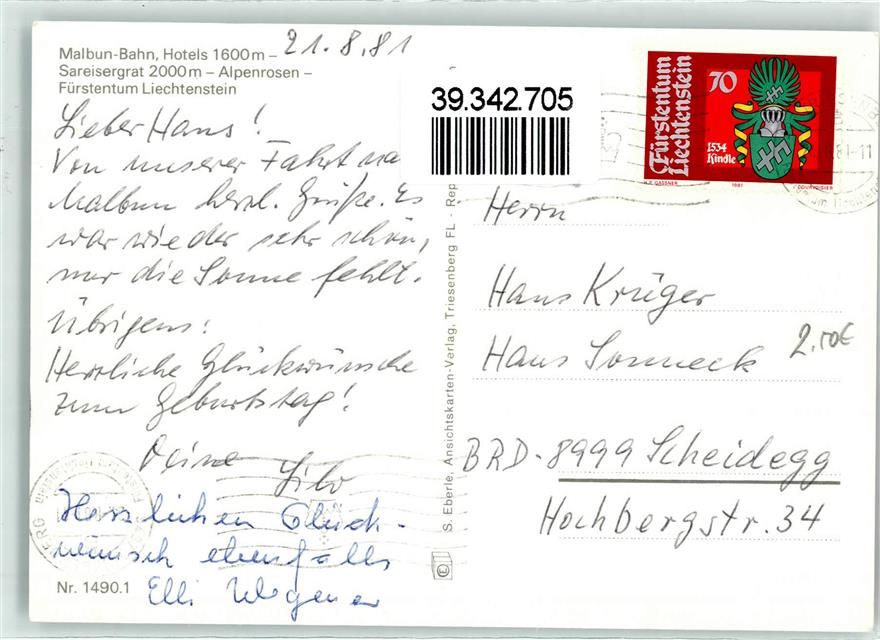 Malbun-Bahn, Hotels 1600m –
Sareisergrat 2000m – Alpenrosen –
Fürstentum Liechtenstein
21.8.81
Lieber Hans!
Von unserer Fahrt na
Malbun herzl. Grüße. Es
war wieder sehr schön,
nur die Sonne fehlt.
Übrigens:
Herzliche Glückwünsche
zum Geburtstag!
Deine
Herzlichen Glück-
wunsch ebenfalls
Elli Wegener
Nr. 1490.1
39.342.705
S. Eberle, Ansichtskarten-Verlag, Triesenberg FL - Rep
Fürstentum
Liechtenstein
70
1534
Kindle
H.P. GASSNER
1981
COURVOISIER
Herrn
Hans Krüger
Haus Sonneck
2.50€
BRD-8999 Scheidegg
Hochbergstr. 34